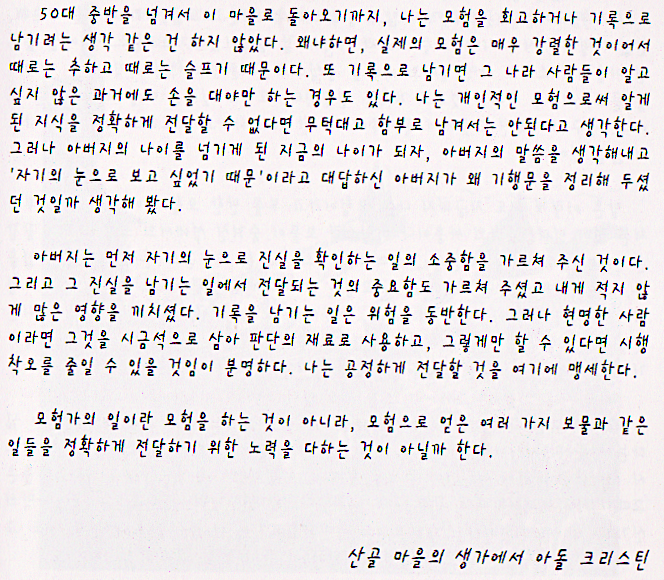 50대 중반을 넘겨서 이 마을로 돌아오기까지, 나는 모험을 회고하거나 기록으로
남기려는 생각 같은 건 하지 않았다. 왜냐하면, 실제의 모험은 매우 강렬한 것이어서
때로는 추하고 때로는 슬프기 때문이다. 또 기록으로 남기면 그 나라 사람들이 알고
싶지 않은 과거에도 손을 대야만 하는 경우도 있다. 나는 개인적인 모험으로써 알게
된 지식을 정확하게 전달할 수 없다면 무턱대고 함부로 남겨서는 안된다고 생각한다.
그러나 아버지의 나이를 넘기게 된 지금의 나이가 되자, 아버지의 말씀을 생각해내고
'자기의 눈으로 보고 싶었기 때문'이라고 대답하신 아버지가 왜 기행문을 정리해 두셨
던 것일까 생각해 봤다.
아버지는 먼저 자기의 눈으로 진실을 확인하는 일의 소중함을 가르쳐 주신 것이다.
그리고 그 진실을 남기는 일에서 전달되는 것의 중요함도 가르쳐 주셨고 내게 적지 않
게 많은 영향을 끼치셨다. 기록을 남기는 일은 위험을 동반한다. 그러나 현명한 사람
이라면 그것을 시금석으로 삼아 판단의 재료로 사용하고, 그렇게만 할 수 있다면 시행
착오를 줄일 수 있을 것임이 분명하다. 나는 공정하게 전달할 것을 여기에 맹세한다.
모험가의 일이란 모험을 하는 것이 아니라, 모험으로 얻은 여러 가지 보물과 같은
일들을 정확하게 전달하기 위한 노력을 다하는 것이 아닐까 한다.
산골 마을의 생가에서 아돌 크리스틴